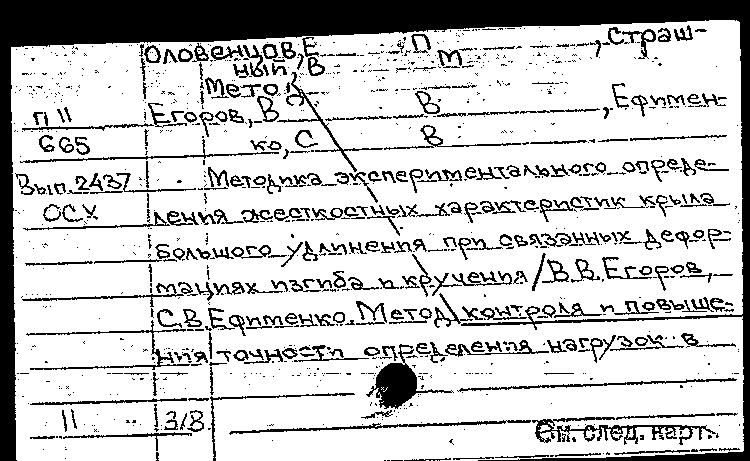 Оловенцов, Е П , Страш-
ный, В М
Мето
П II Егоров, В В , Ефимен-
665 ко, С В
Вып. 2437 Методика экспериментального опреде-
ОСХ ления жесткостных характеристик крыла
большого удлинения при связанных дефор-
мациях изгиба и кручения / В.В. Егоров,
С.В. Ефименко. Метод контроля и повыше-
ния точности определения нагрузок в
II 3/8
См. след. карт.